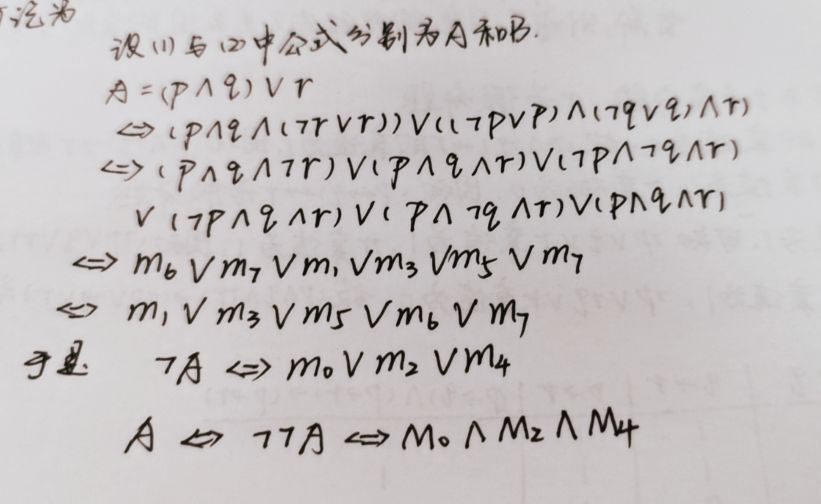 论为
设(1)与(2)中公式分别为A和B.
A=(p∧q)∨r
⇔(p∧q∧(¬r∨r))∨((¬p∨p)∧(¬q∨q)∧r)
⇔(p∧q∧¬r)∨(p∧q∧r)∨(¬p∧¬q∧r)
∨(¬p∧q∧r)∨(p∧¬q∧r)∨(p∧q∧r)
⇔ m₆∨m₇∨m₁∨m₃∨m₅∨m₇
⇔ m₁∨m₃∨m₅∨m₆∨m₇
于是 ¬A⇔m₀∨m₂∨m₄
A⇔¬¬A⇔M₀∧M₂∧M₄